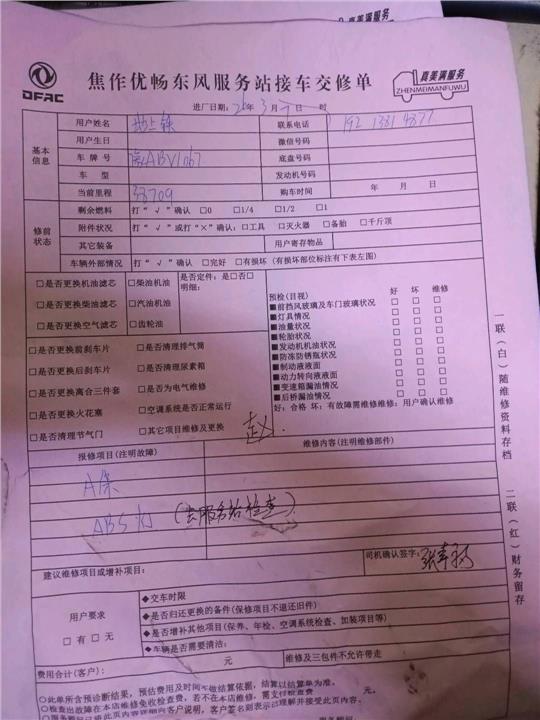 DFAC
焦作优畅东风服务站接车交修单
真美满服务
ZHENMEIMANFUWU
进厂日期: 年 3 月 日 时
基本信息
用户姓名
联系电话
用户生日
微信号码
车牌号 豫ABV1067
底盘号码
车 型
发动机号码
当前里程 38709
购车时间 年 月 日
修前状态
剩余燃料 打“√”确认 □0 □1/4 □1/2 □1
附件状况 打“√”或打“×”确认:□工具 □灭火器 □备胎 □千斤顶
其它装备 用户寄存物品
车辆外部情况 打“√”确认 □完好 □有损坏(有损坏部位标注有下表左图)
□是否更换机油滤芯 □柴油机油
□是否更换柴油滤芯 □汽油机油
□是否更换空气滤芯 □齿轮油
是否定件:是□否□
明细:
□是否更换前刹车片 □是否清理排气筒
□是否更换后刹车片 □是否清理尿素箱
□是否更换离合三件套 □是否为电气维修
□是否更换火花塞 □空调系统是否正常运行
□是否清理节气门 □其它项目维修及更换
预检(目视) 好 坏 维修
■前挡风玻璃及车门玻璃状况 □ □ □
■灯具情况 □ □ □
■油量状况 □ □ □
■轮胎状况 □ □ □
■发动机机油状况 □ □ □
■防冻防锈瓶状况 □ □ □
■制动液液面 □ □ □
■动力转向液液面 □ □ □
■变速箱漏油情况 □ □ □
■后桥漏油情况 □ □ □
好:合格 坏:有故障需维修维修:用户确认维修
赵
报修项目(注明故障) 维修内容(注明维修部件)
A保
ABS灯 (去服务站检查)
建议维修项目或增补项目:
司机确认签字:
用户要求
□有 □无
◆交车时限
◆是否归还更换的备件(保修项目不退还旧件)
◆是否增补其他项目(保养、年检、空调系统检查、加装项目等)
◆车辆是否需要清洁:
费用合计(客户): 元 维修及三包件不允许带走
○此单所含预诊断结果,预估费用及时间不做结算依据,结算以结算单为准.
○检查出故障在本店维修免收检查费,若不在本店维修,需支付检查费 元
一联(白)随维修资料存档
二联(红)财务留存